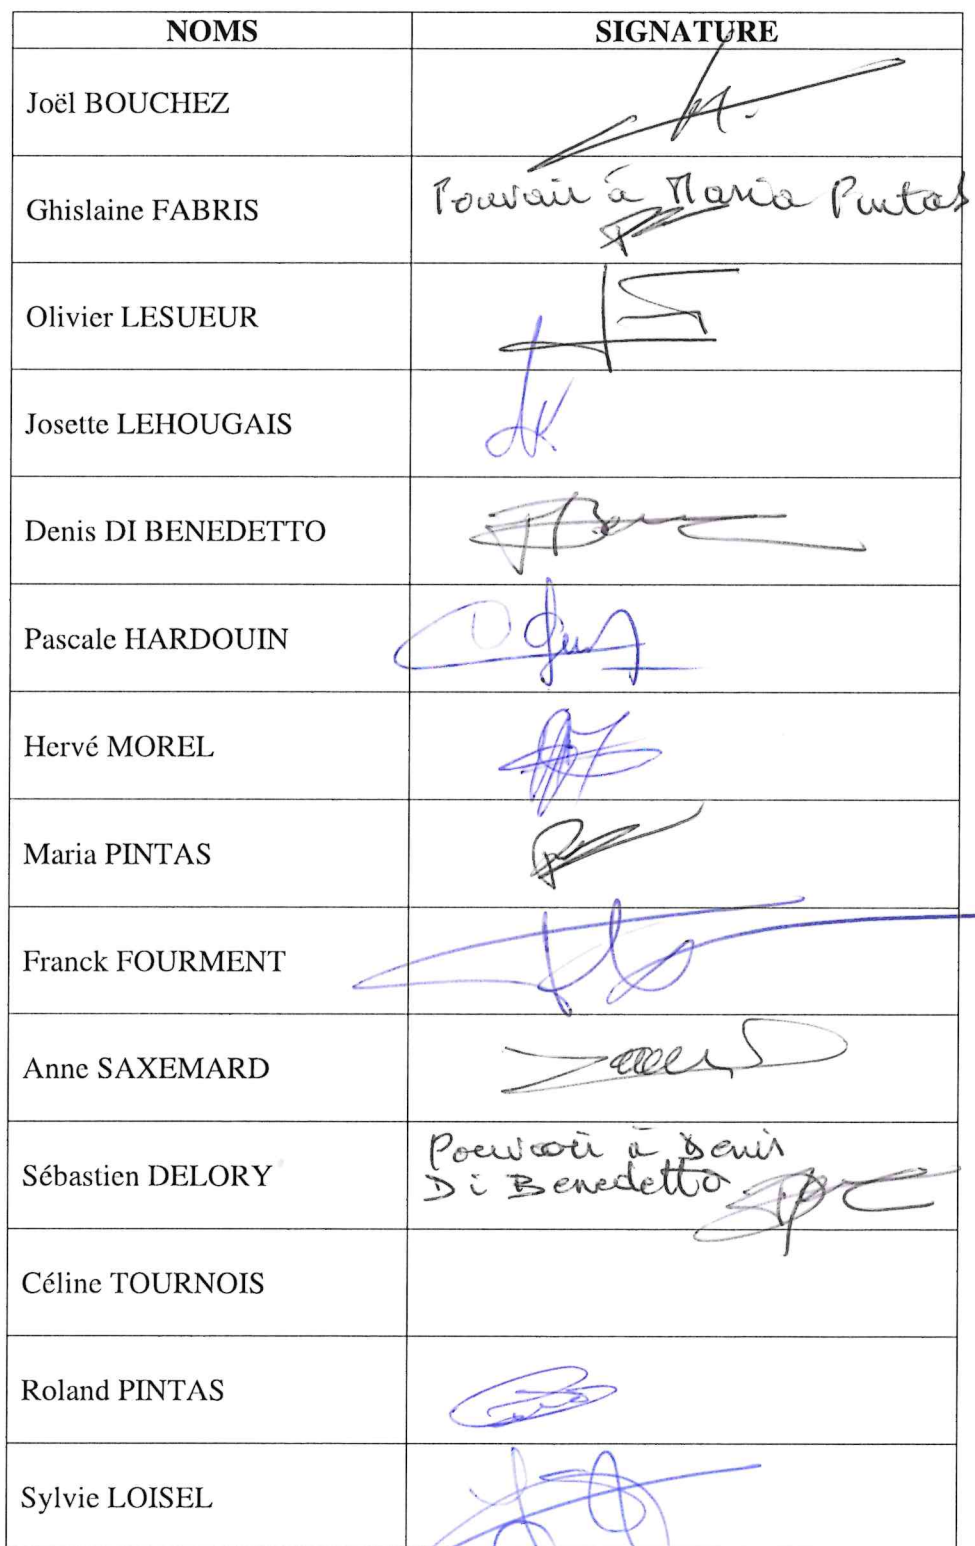 NOMS SIGNATURE
Joël BOUCHEZ
Ghislaine FABRIS Pouvoir à Maria Pintas
Olivier LESUEUR
Josette LEHOUGAIS
Denis DI BENEDETTO
Pascale HARDOUIN
Hervé MOREL
Maria PINTAS
Franck FOURMENT
Anne SAXEMARD
Sébastien DELORY Pouvoir à Denis
Di Benedetto
Céline TOURNOIS
Roland PINTAS
Sylvie LOISEL